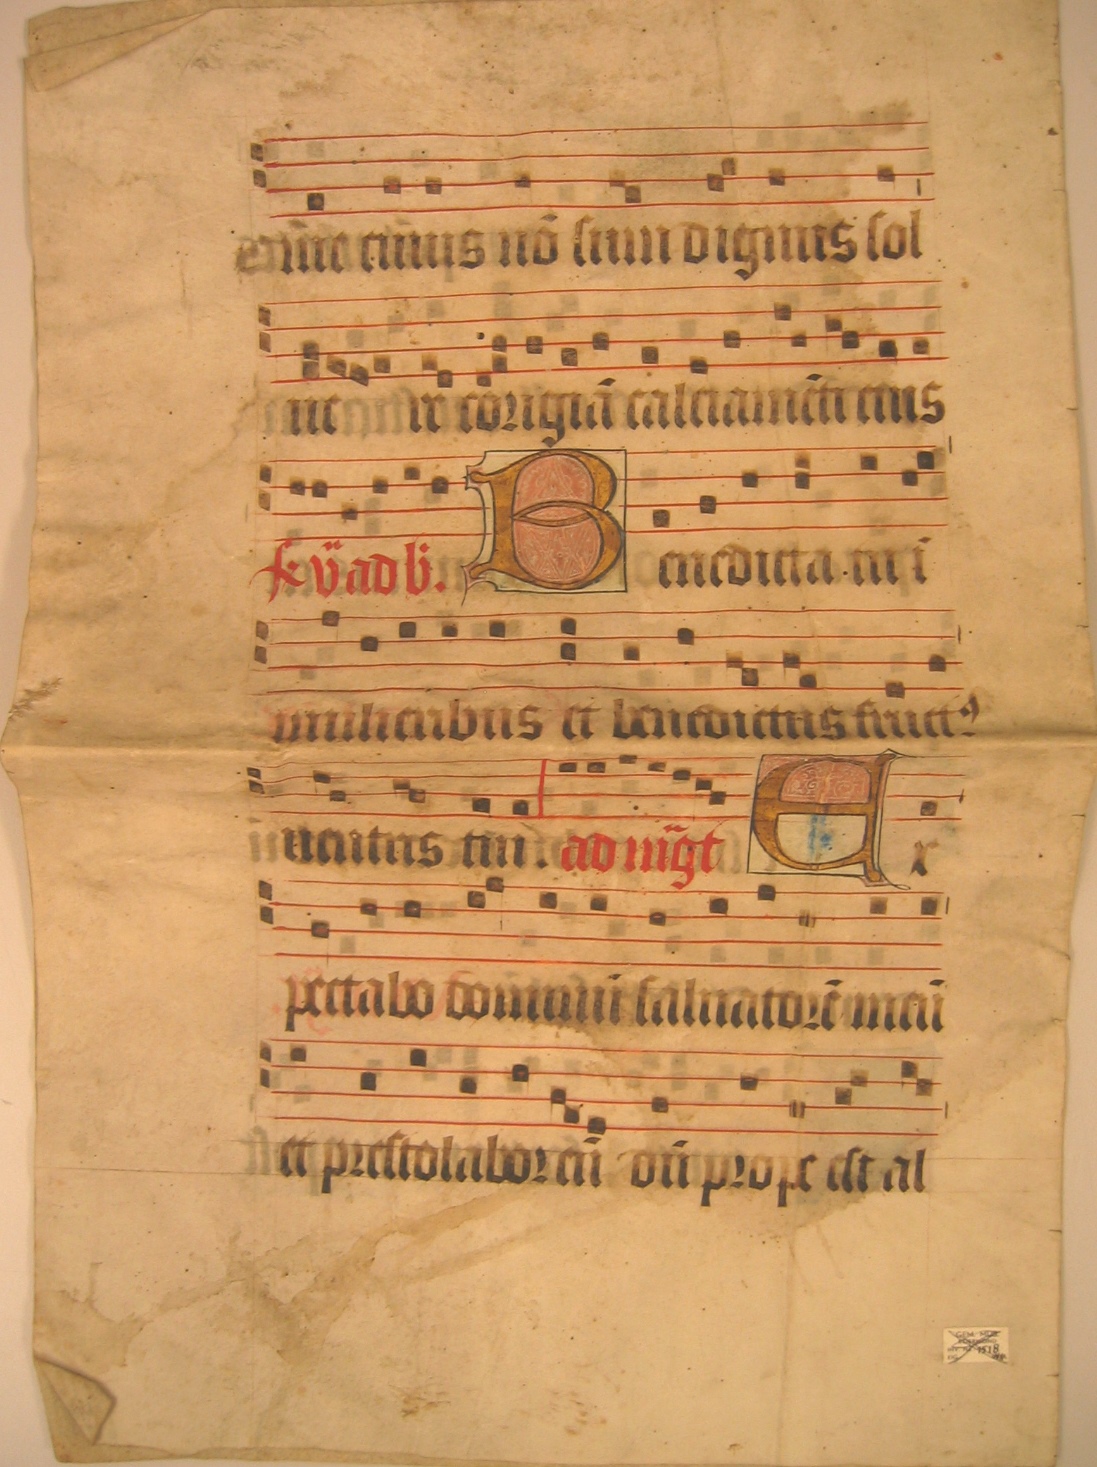 cuius nō sum dignus sol
ue re corigiā calciamēti eius
B enedicta tu ī
mulieribus et benedictus fruct⁹
uentris tui. A x
pectabo dominū saluatorē meū
et prestolabor eū dū prope est al